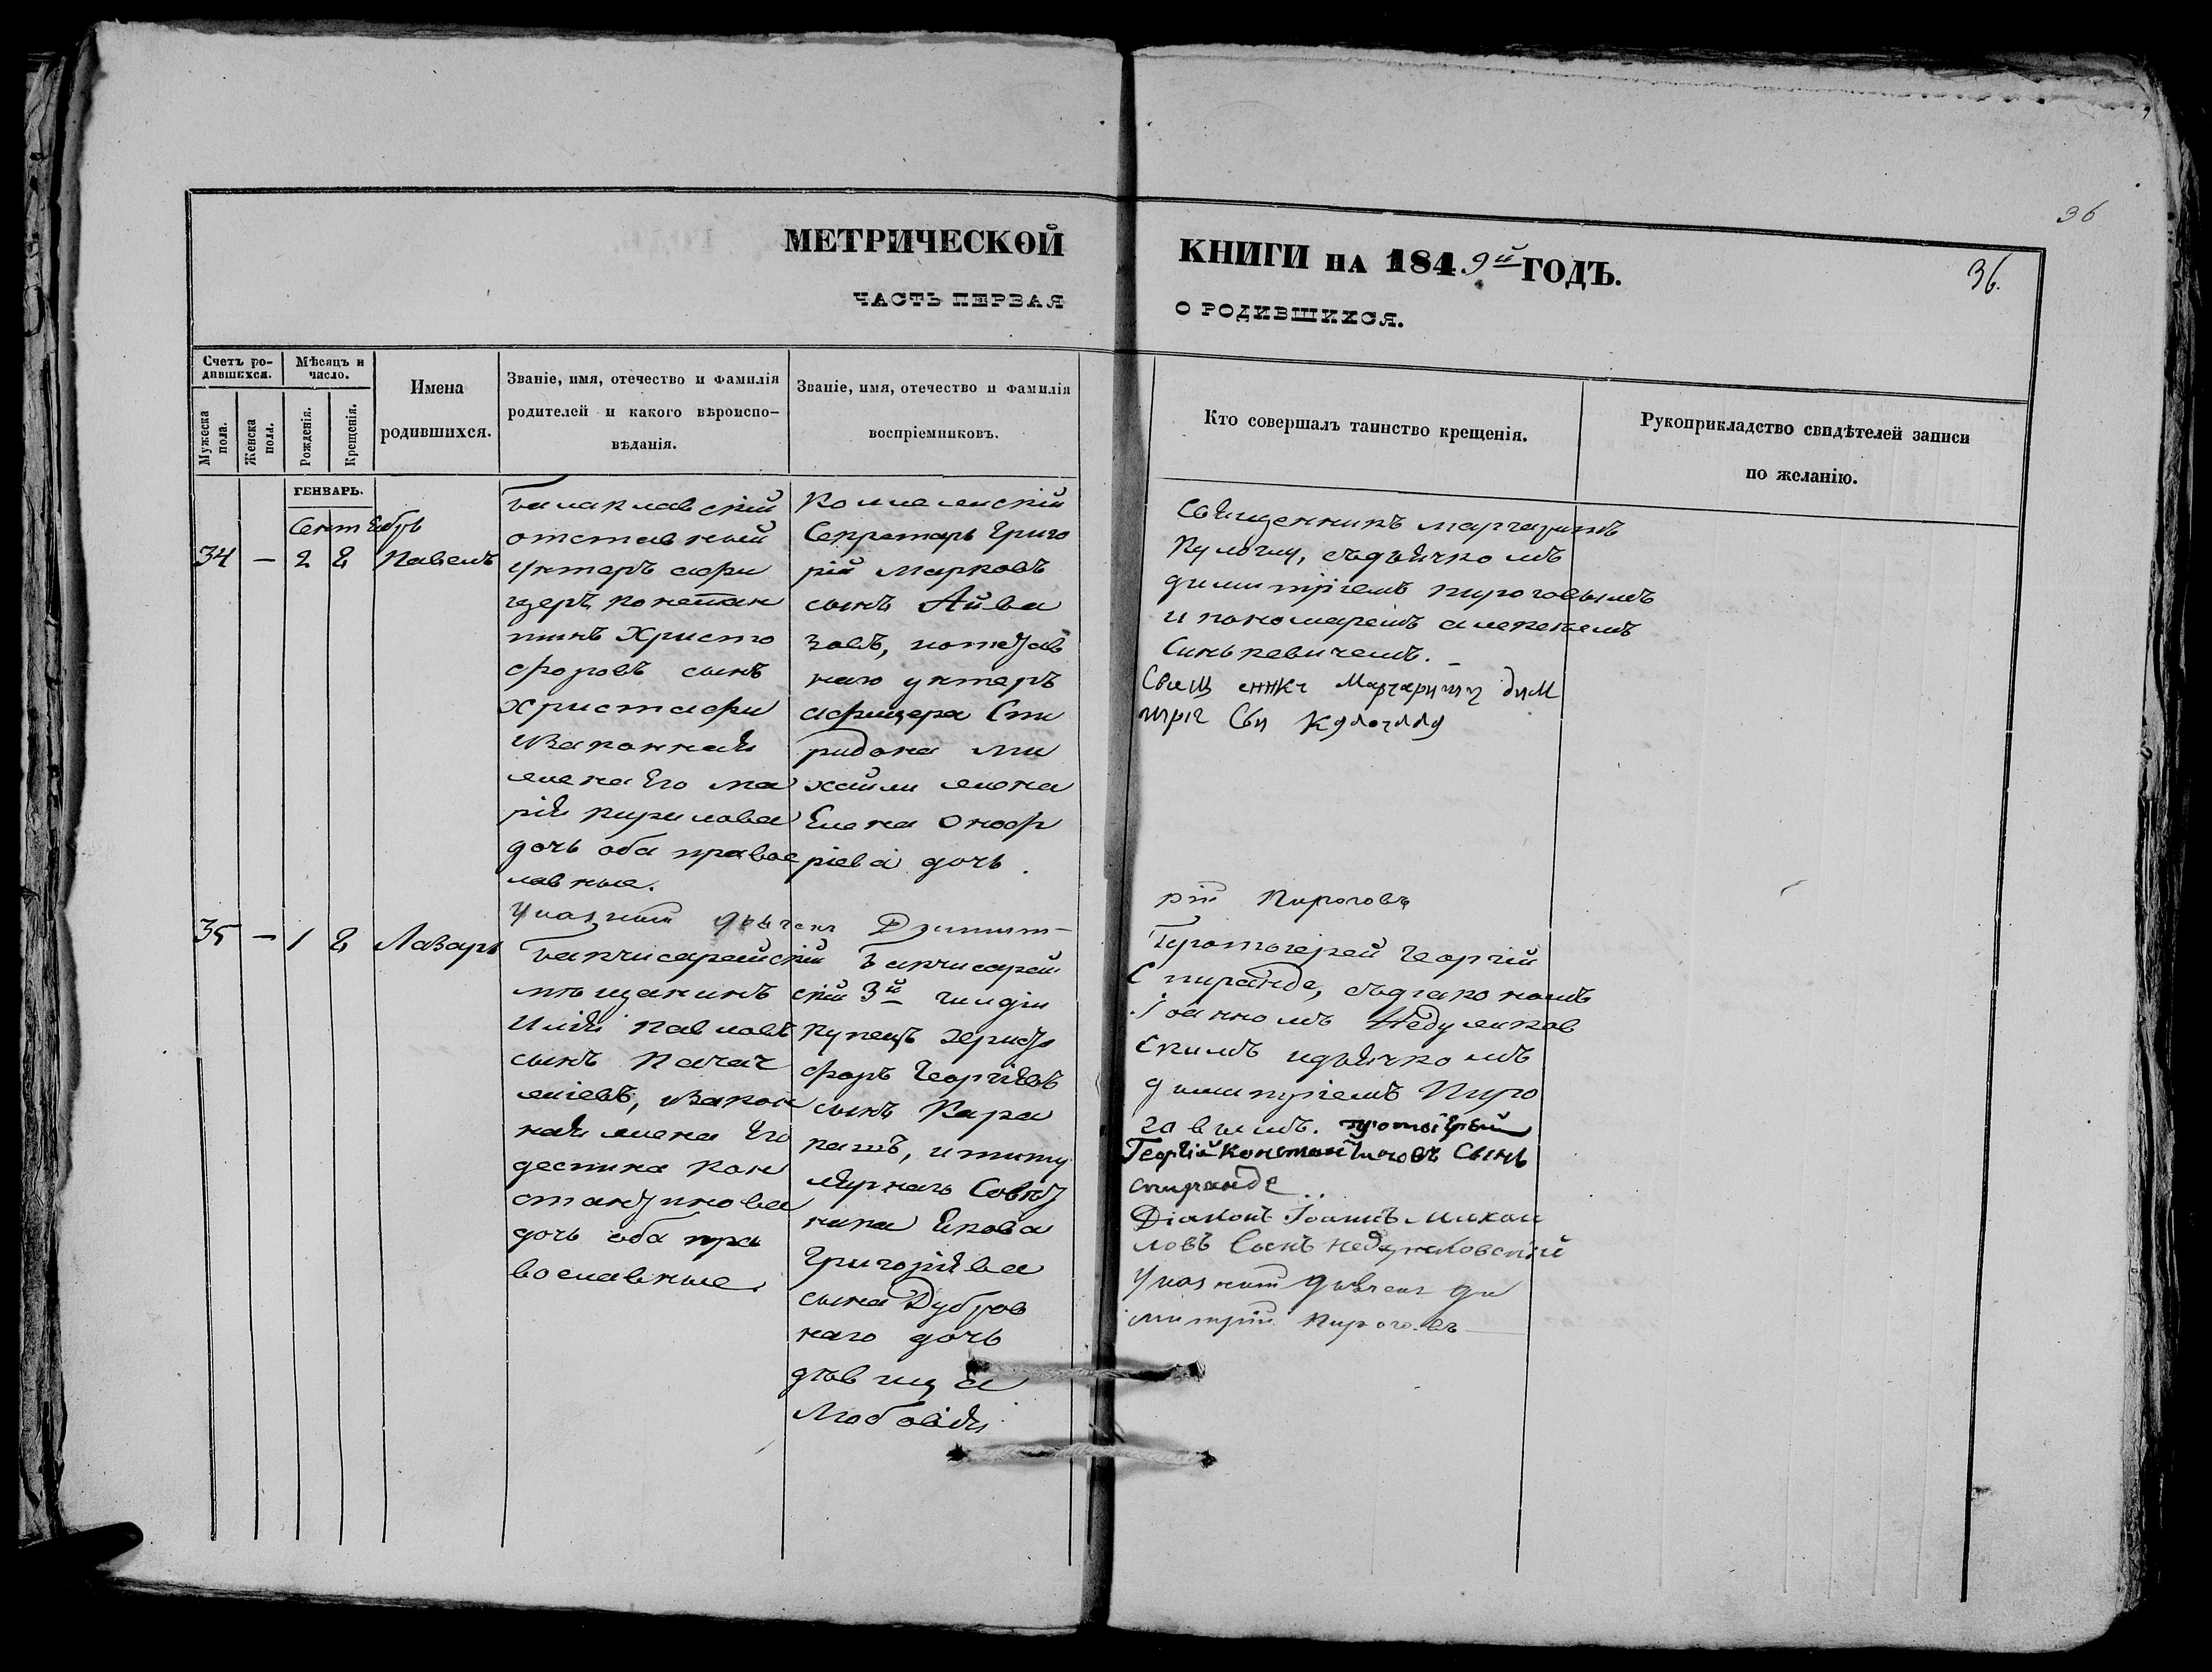 36
МЕТРИЧЕСКОЙ КНИГИ НА 1849й ГОДЪ.
36.
ЧАСТЬ ПЕРВАЯ О РОДИВШИХСЯ.
Счетъ ро-
дившихся.
Мужеска
пола.
Женска
пола.
Мѣсяцъ и
число.
Рожденія.
Крещенія.
Имена
родившихся.
Званіе, имя, отечество и фамилія
родителей и какого вѣроиспо-
вѣданія.
Званіе, имя, отечество и фамилія
воспріемниковъ.
Кто совершалъ таинство крещенія.
Рукоприкладство свидѣтелей записи
по желанію.
ГЕНВАРЬ.
Сентябрь
34 — 2 8 Павелъ
Балаклавскій
отставный
унтеръ афи
церъ констан
тинъ Христо
форовъ сынъ
Христафи
изаконная
жена Его ма
рія кирилова
дочь оба правос
лавные.
Коллежскій
Секретарь Григо
рій Марковъ
сынъ Айва
зовъ, иотстав
наго унтеръ
афицера Спи
ридона Ми
хайли жена
Елена Онофр
ріева дочь.
Священникъ маргаритъ
Кулогли, съдьячкомъ
димитріемъ пироговымъ
и пономаремъ алексеемъ
Синькевичемъ.
Указный дьячекъ Димит-
рій Пироговъ
35 — 1 8 Лазарь
Бакчисарайскій
мѣщанинъ
Илія павловъ
сынъ
изакон
ная жена Его
деспина кон
стантинова
дочь оба пра
вославные.
Бакчисарай
скій 3й гилдіи
купецъ христо
форъ Георгіевъ
сынъ Кара
кашъ, ититу
лярнаго Совет
ника Якова
Григоріева
сына Дубров
наго дочь
дѣвица
Любовія
Протоіерей Георгій
Спиранде, съдіакономъ
Іоанномъ Недзелков
скимъ идьячкомъ
димитріемъ Пиро
говымъ. протоіерей
Георгій Константиновъ Сынъ
спиранде
Діаконъ Іоаннъ Михаи
ловъ Сынъ
Указный дьячекъ ди
митрій Пироговъ